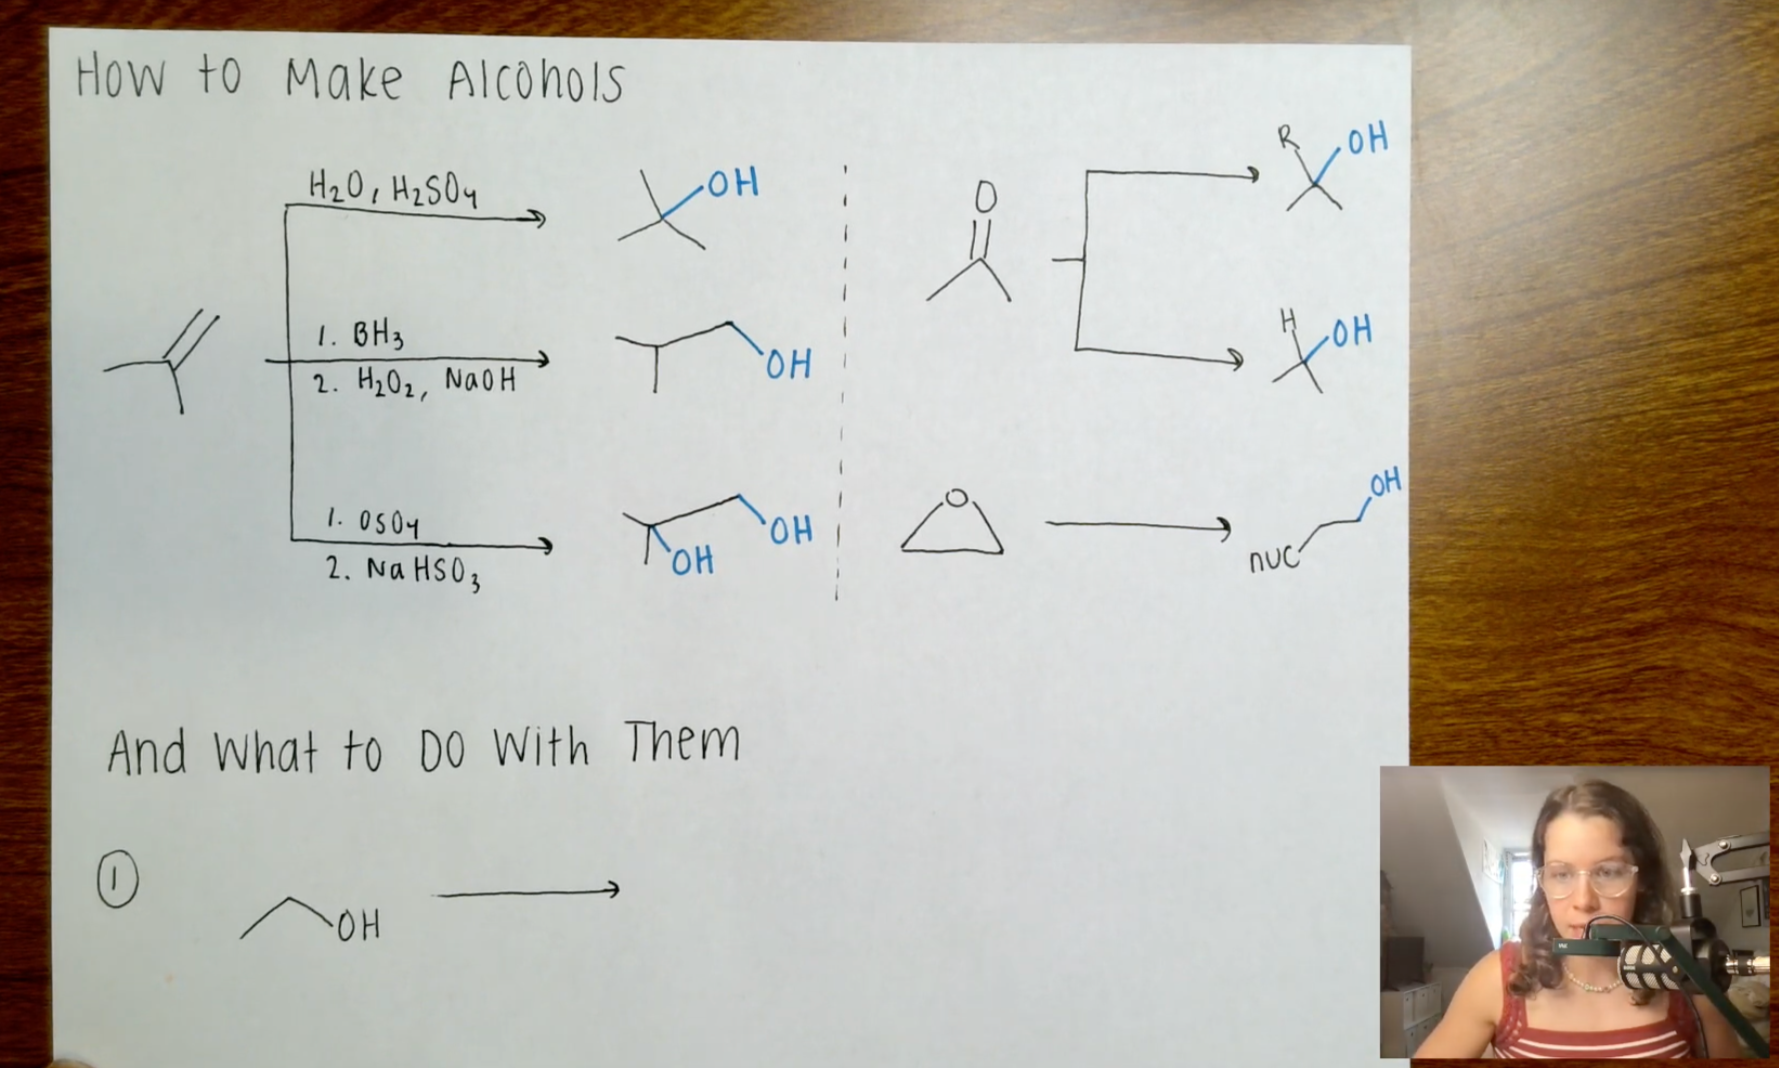 How to Make Alcohols
H2O, H2SO4
OH
1. BH3
2. H2O2, NaOH
OH
1. OsO4
2. NaHSO3
OH
OH
O
R
OH
H
OH
O
nuc
OH
And What to Do With Them
1
OH